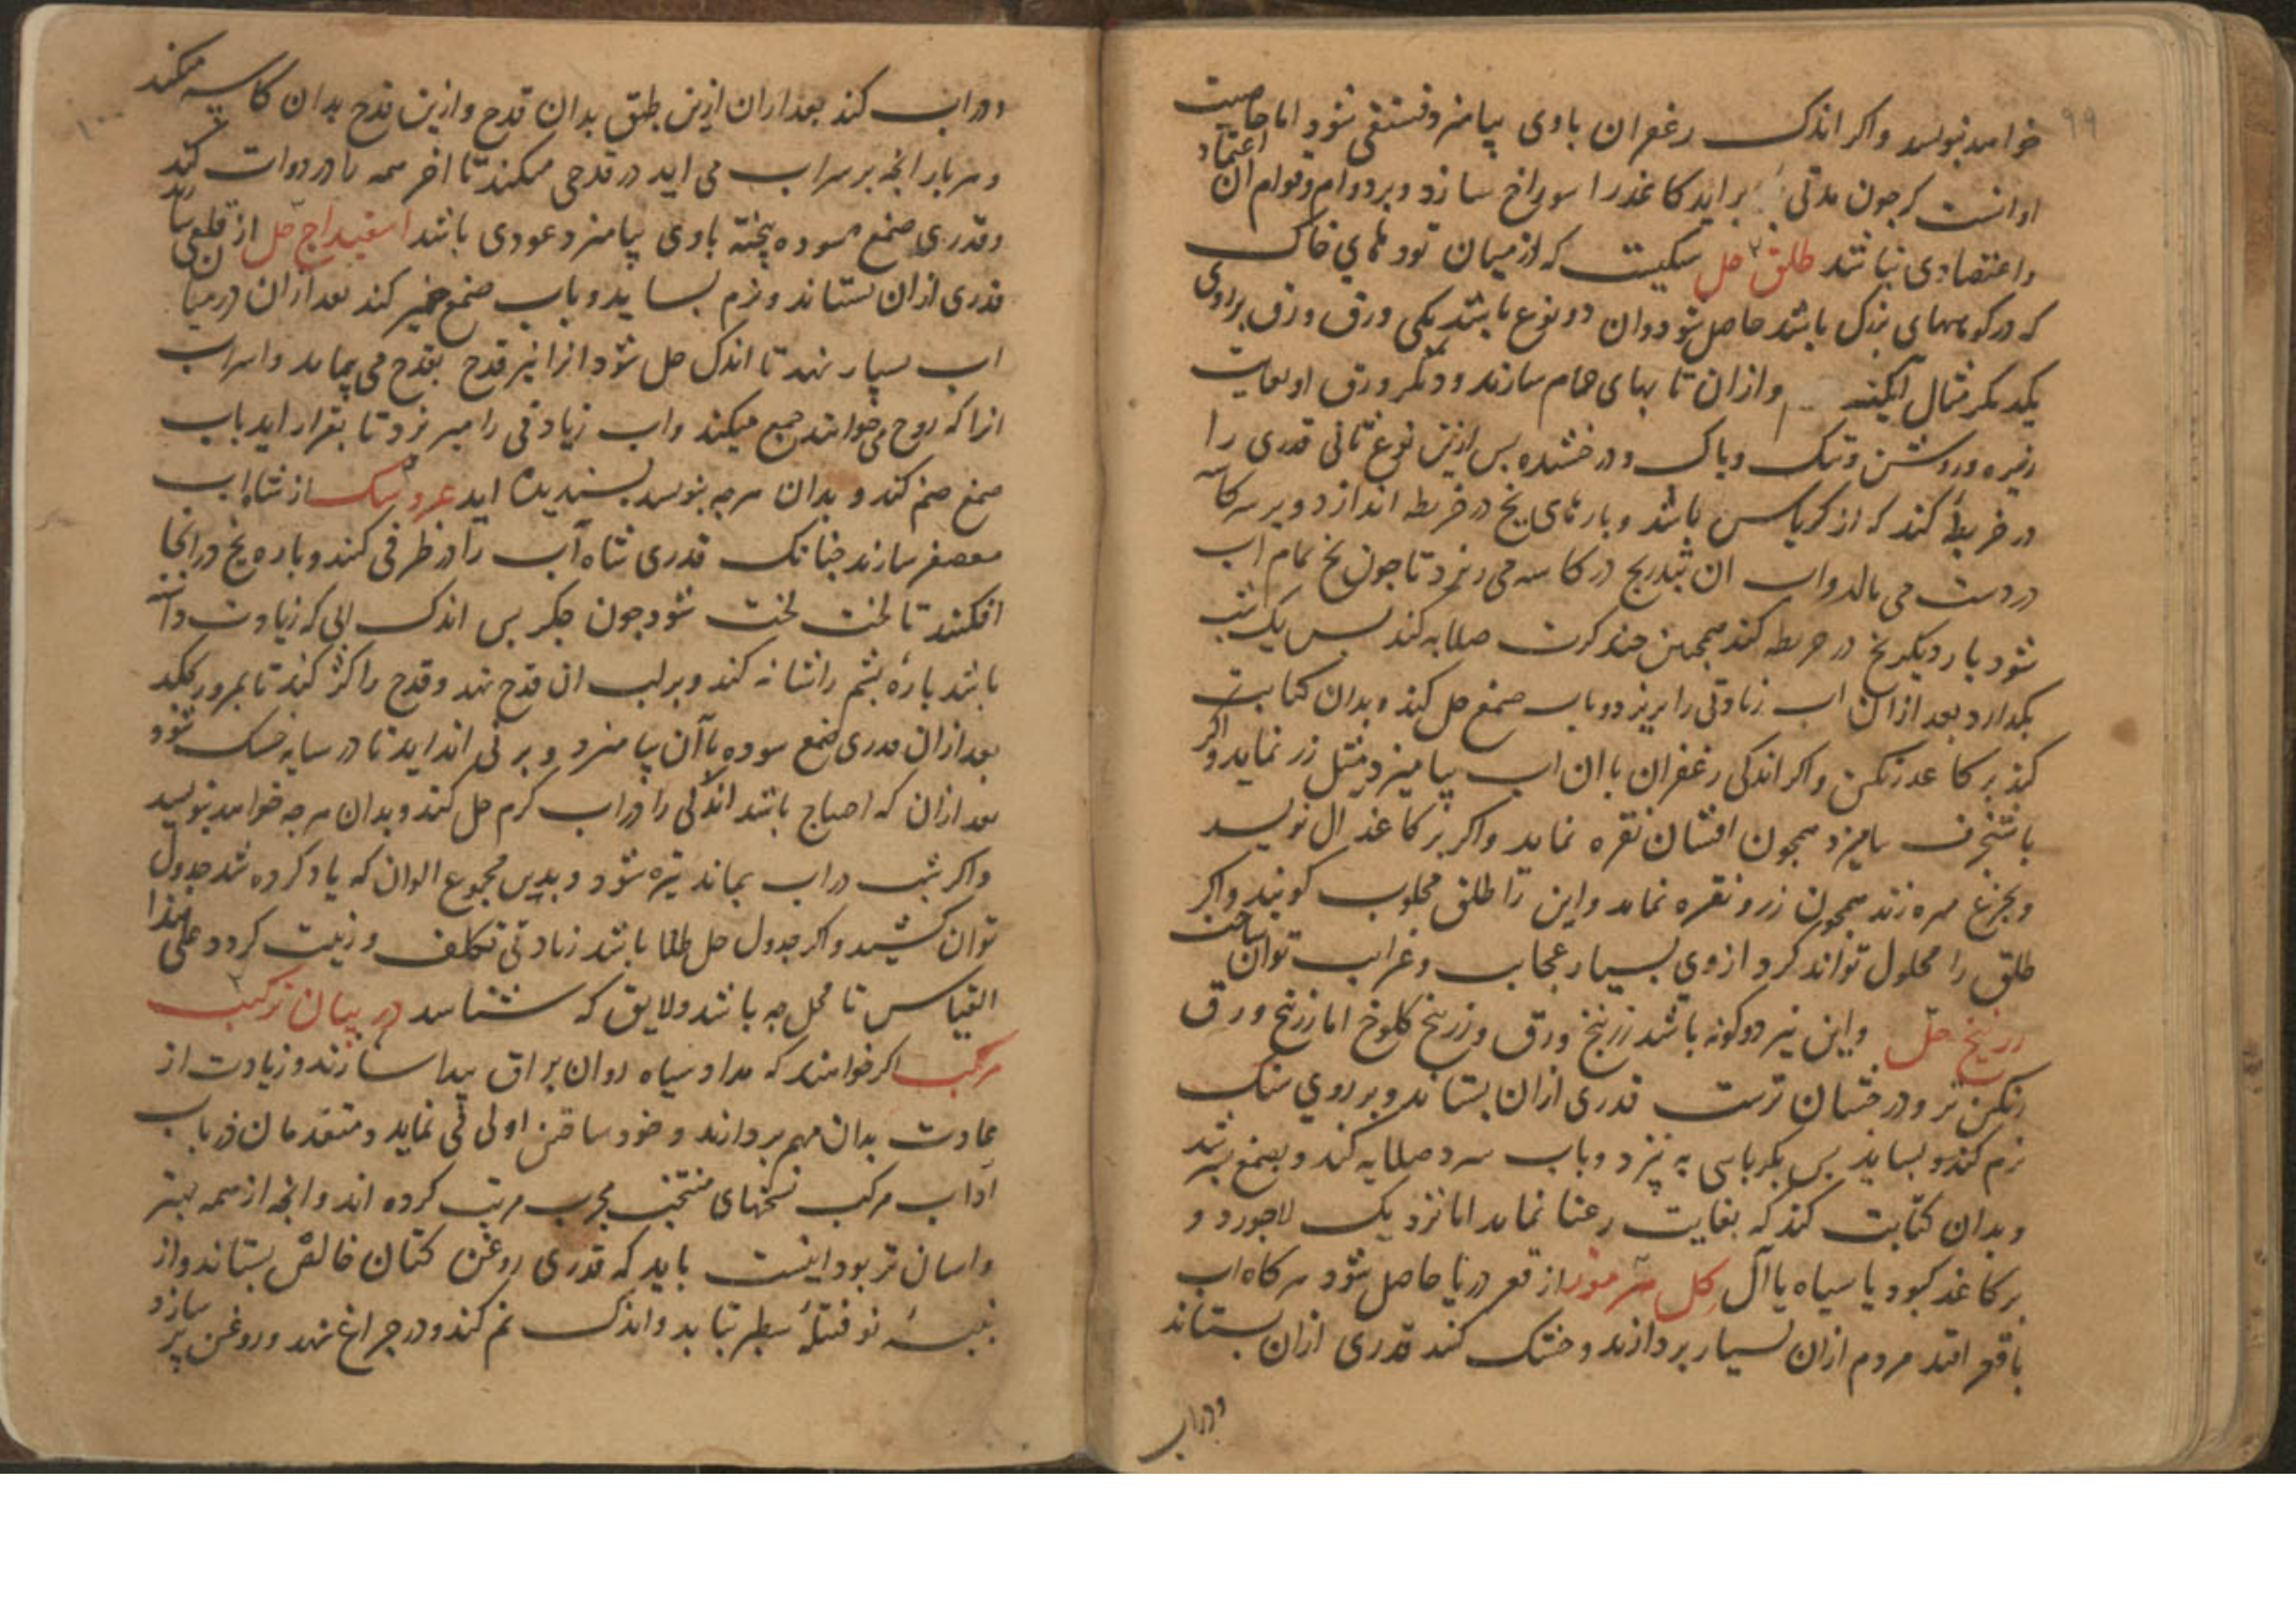 ۹۹
خواهد نویسد و اکر اندک زعفران باوی بیامیزد فستقی شود اما خاصیت
او انست که چون مدتی براید کاغذ را سوراخ سازد و بر دوام و قوام ان اعتماد
و اعتضادی نباشد طلق حل سنکیست که از میان تودهای خاک
که در کوههای بزرک باشد حاصل شود و ان دو نوع باشد یکی ورق ورق بر روی
یکدیکر مثال آبکینه و ازان تابهای حمام سازند و دیکر ورق او بغایت
ریزه و روشن و تنک و پاک و درخشنده پس ازین نوع ثانی قدری را
در خریطهٔ کند که از کرباس باشد و پارهای یخ در خریطه اندازد و بر سر کاسه
در دست می مالد و اب ان بتدریج در کاسه می ریزد تا چون یخ تمام اب
شود بار دیکر یخ در خریطه کند همچنین چند کرت صلایه کند پس یک شب
بکذارد بعد ازان اب زیادتی را بریزد و باب صمغ حل کند و بدان کتابت
کند بر کاغذ رنکین و اکر اندکی زعفران با ان اب بیامیزد مثل زر نماید و اکر
با شنجرف بیامیزد همچون افشان نقره نماید و اکر بر کاغذ ال نویسد
و بجزع مهره زند همچون زر و نقره نماید و این را طلق محلوب کویند و اکر
طلق را محلول تواند کرد از وی بسیار عجایب و غرایب توان ساخت
زرنیخ حل و این نیز دو کونه باشد زرنیخ ورق و زرنیخ کلوخ اما زرنیخ ورق
رنکین تر و درخشان ترست قدری ازان بستاند و بر روی سنک
نرم کند و بساید پس بکرباسی به پزد و باب سرد صلایه کند و بصمغ بسرشد
و بدان کتابت کند که بغایت رعنا نماید اما نزدیک لاجورد و
بر کاغذ کبود یا سیاه یا آل کل سرموز از قعر دریا حاصل شود هر کاه اب
باقعر افتد مردم ازان بسیار بردارند و خشک کنند قدری ازان بستاند
و در اب
۱۰۰
و در اب کند بعد ازان ازین طبق بدان قدح و ازین قدح بدان کاسه میکند
و هر بار انچه بر سر اب می اید در قدحی میکند تا اخر همه را در دوات کند
و قدری صمغ سوده پخته باوی بیامیزد عودی باشد اسفیداج حل از قلعی سازند
قدری ازان بستاند و نرم بساید و باب صمغ خمیر کند بعد ازان در میان
اب بسیار نهد تا اندک حل شود انرا نیز قدح بقدح می پیماید و از سر اب
انرا که روح می خوانند جمع میکند و اب زیادتی را میریزد تا بقرار اید باب
صمغ ضم کند و بدان هرچه نویسد پسندیده اید عروسک از شاه اب
معصفر سازند چنانک قدری شاه آب را در ظرفی کند و پاره یخ در انجا
افکند تا لخت لخت شود چون جکر پس اندک ابی که زیادت داشته
باشد پارهٔ پشم را نشانه کند و بر لب ان قدح نهد و قدح را کژ کند تا بمرور بچکد
بعد ازان قدری صمغ سوده با آن بیامیزد و بر نی انداید تا در سایه خشک شود
بعد ازان که احتیاج باشد اندکی را در اب کرم حل کند و بدان هرچه خواهد نویسد
و اکر شب در اب بماند تیره شود و بدین مجموع الوان که یاد کرده شد جدول
توان کشید و اکر جدول حل طلا باشد زیادتی تکلف و زینت کردد علی هذا
القیاس تا محل چه باشد و لایق که شناسد در بیان ترکیب
مرکب اکر خواهند که مداد سیاه روان براق پیدا سازند و زیادت از
عادت بدان مهم پردازند و خود ساختن اولی می نماید و متقدمان در باب
آداب مرکب نسخهای منتخب مجرب مرتب کرده اند و انچه از همه بهتر
و اسان تر بود اینست باید که قدری روغن کتان خالص بستاند و از
پنبهٔ نو فتیلهٔ سطبر بتابد و اندک نم کند و در چراغ نهد و روغن پر سازد